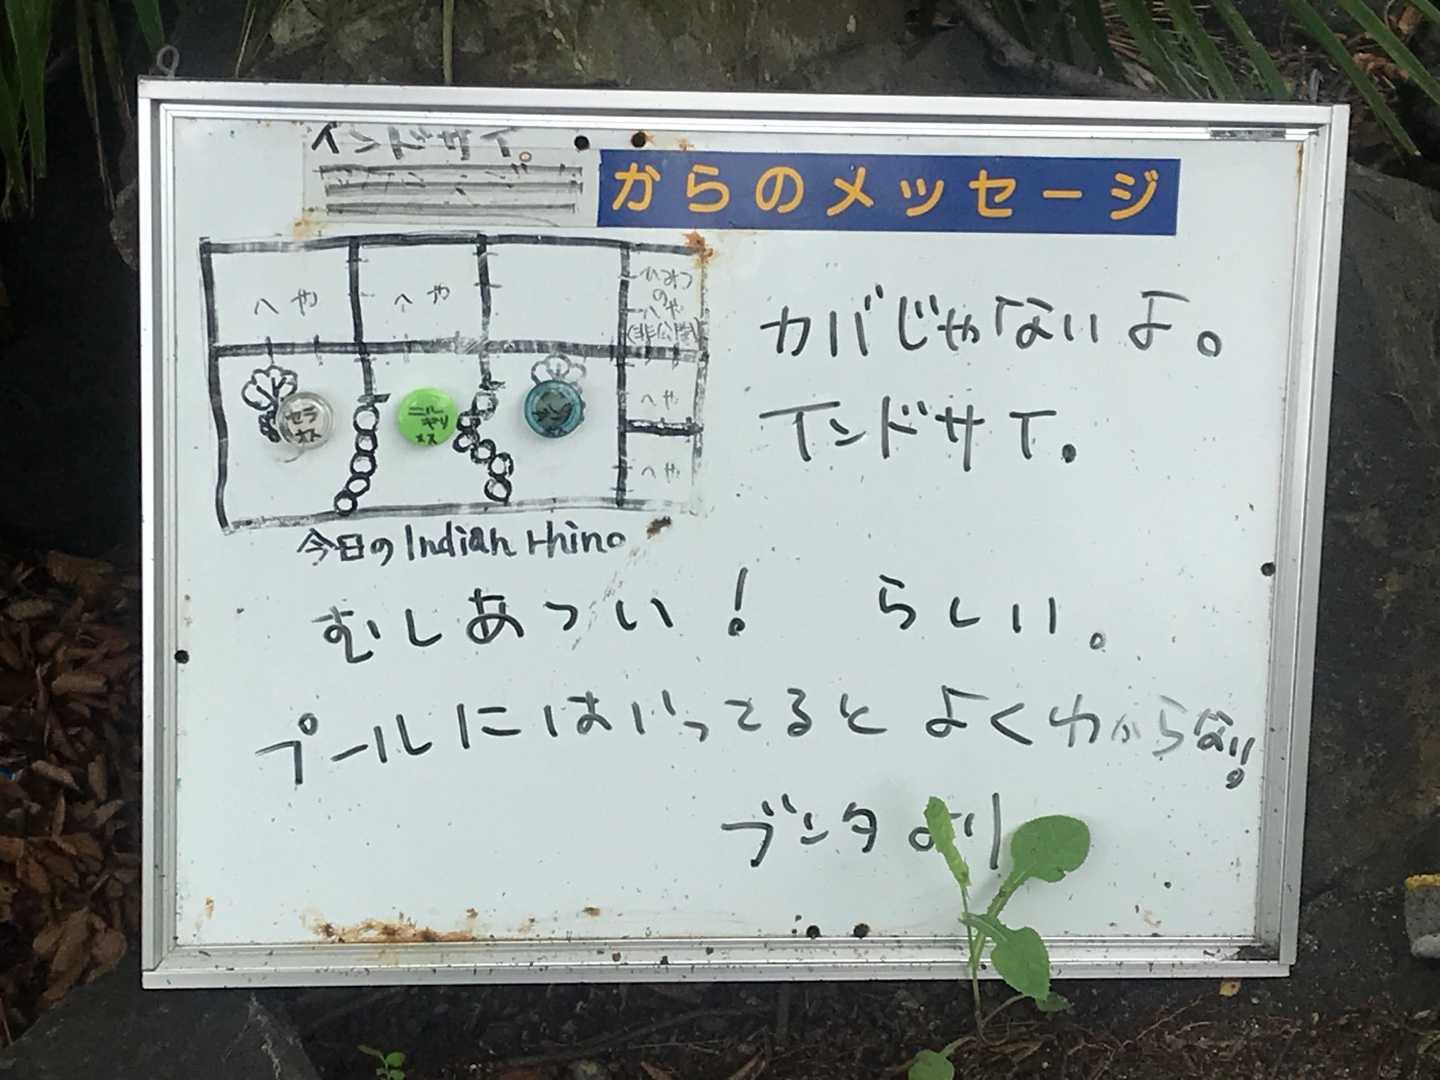 インドサイ。
からのメッセージ
へや
へや
ひみつ
のへや
(非公開)
へや
へや
セラ
オス
ニル
ギリ
メス
今日のIndian rhino
カバじゃないよ。
インドサイ。
むしあつい! らしい。
プールにはいってるとよくわからない!
ブンタより